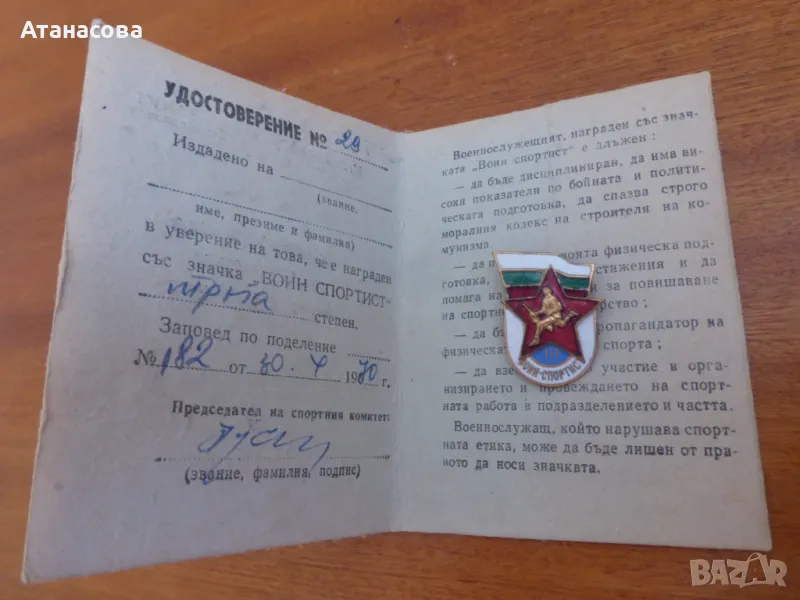 Атанасова
УДОСТОВЕРЕНИЕ № 29
Издадено на
(звание,
име, презиме и фамилка)
в уверение на това, че е награден
със значка „ВОИН СПОРТИСТ“
трета степен.
Заповед по поделение
№ 182 от 30. 1970 г.
Председател на спортния комитет:
(звание, фамилия, подпис)
Военнослужещият, награден със знач-
ката „Воин спортист“ е длъжен:
— да бъде дисциплиниран, да има ви-
соки показатели по бойната и полити-
ческата подготовка, да спазва строго
моралния кодекс на строителя на ко-
мунизма.
— да п воята физическа под-
готовка, стижения и да
помага на и за повишаване
на спортно рство;
— да бъ ропагандатор на
физическат спорта;
— да взе участие в орга-
низирането и провеждането на спорт-
ната работа в подразделението и частта.
Военнослужащ, който нарушава спорт-
ната етика, може да бъде лишен от пра-
вото да носи значката.
III
ВОИН-СПОРТИСТ
BAZAR